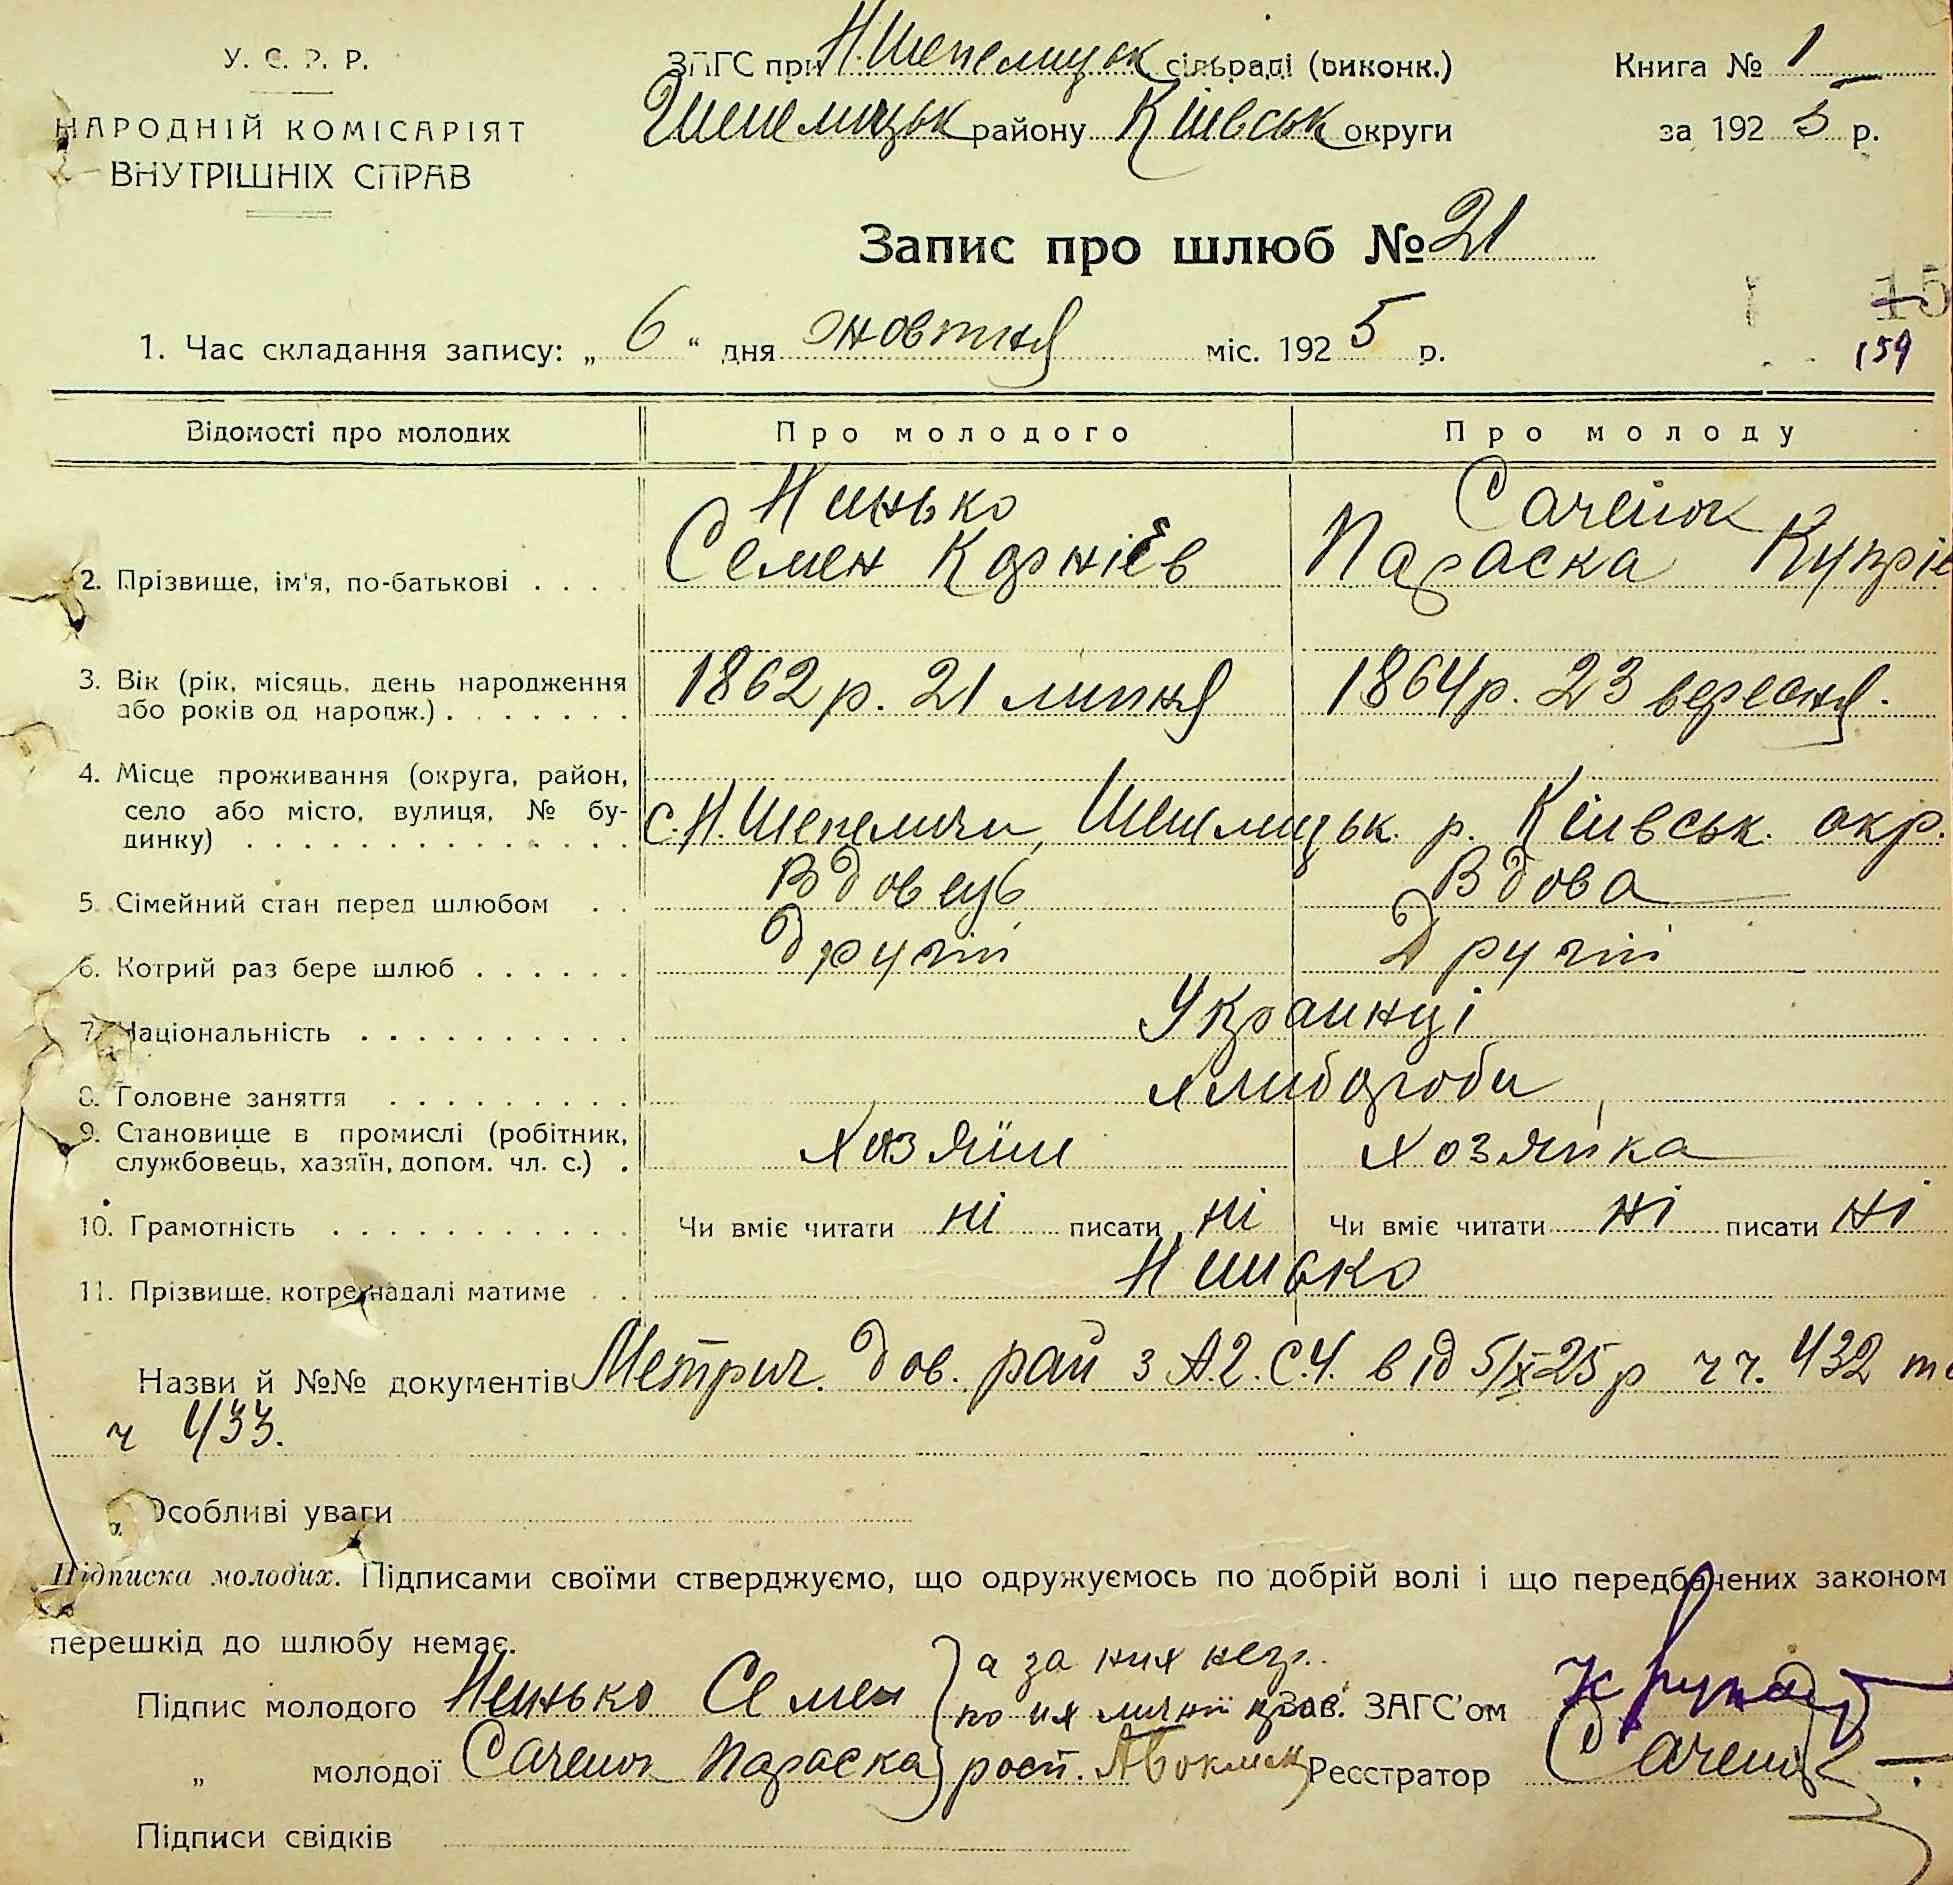 У. С. Р. Р.
НАРОДНІЙ КОМІСАРІЯТ
ВНУТРІШНІХ СПРАВ
ЗАГС при Н. Шепелицьк сільраді (виконк.)
Шепелицьк району Київськ округи
Книга № 1
за 1925 р.
Запис про шлюб № 21
15
159
1. Час складання запису: „ 6 “ дня жовтня міс. 1925 р.
Відомості про молодих Про молодого Про молоду
Нинько Саченок
2. Прізвище, ім'я, по-батькові . . . . Семен Корніев Параска Купріє
3. Вік (рік, місяць, день народження
або років од народж.) . . . . . . . 1862 р. 21 липня 1864 р. 23 вересня.
4. Місце проживання (округа, район,
село або місто, вулиця, № бу-
динку) . . . . . . . . . . . . . . . с. Н. Шепеличи, Шепелицьк. р. Київськ. окр.
5. Сімейний стан перед шлюбом . . Вдовець Вдова
6. Котрий раз бере шлюб . . . . . . Другий Другий
7. Національність . . . . . . . . . . Украинці
8. Головне заняття . . . . . . . . . хлибороби
9. Становище в промислі (робітник,
службовець, хазяїн, допом. чл. с.) . Хозяїин хозяйка
10. Грамотність . . . . . . . . . . . Чи вміє читати ні писати ні Чи вміє читати ні писати ні
11. Прізвище, котре надалі матиме . . Нинько
Назви й №№ документів Метрич. дов. рай з А.Г.С.Ч. від 5/X 25 р чч. 432 та
ч 433.
Особливі уваги
Підписка молодих. Підписами своїми стверджуємо, що одружуємось по добрій волі і що передбачених законом
перешкід до шлюбу немає.
а за них негр.
Підпис молодого Нинько Семен по их личній Зав. ЗАГС'ом
„ молодої Саченок Параска Реєстратор Саченок
Підписи свідків